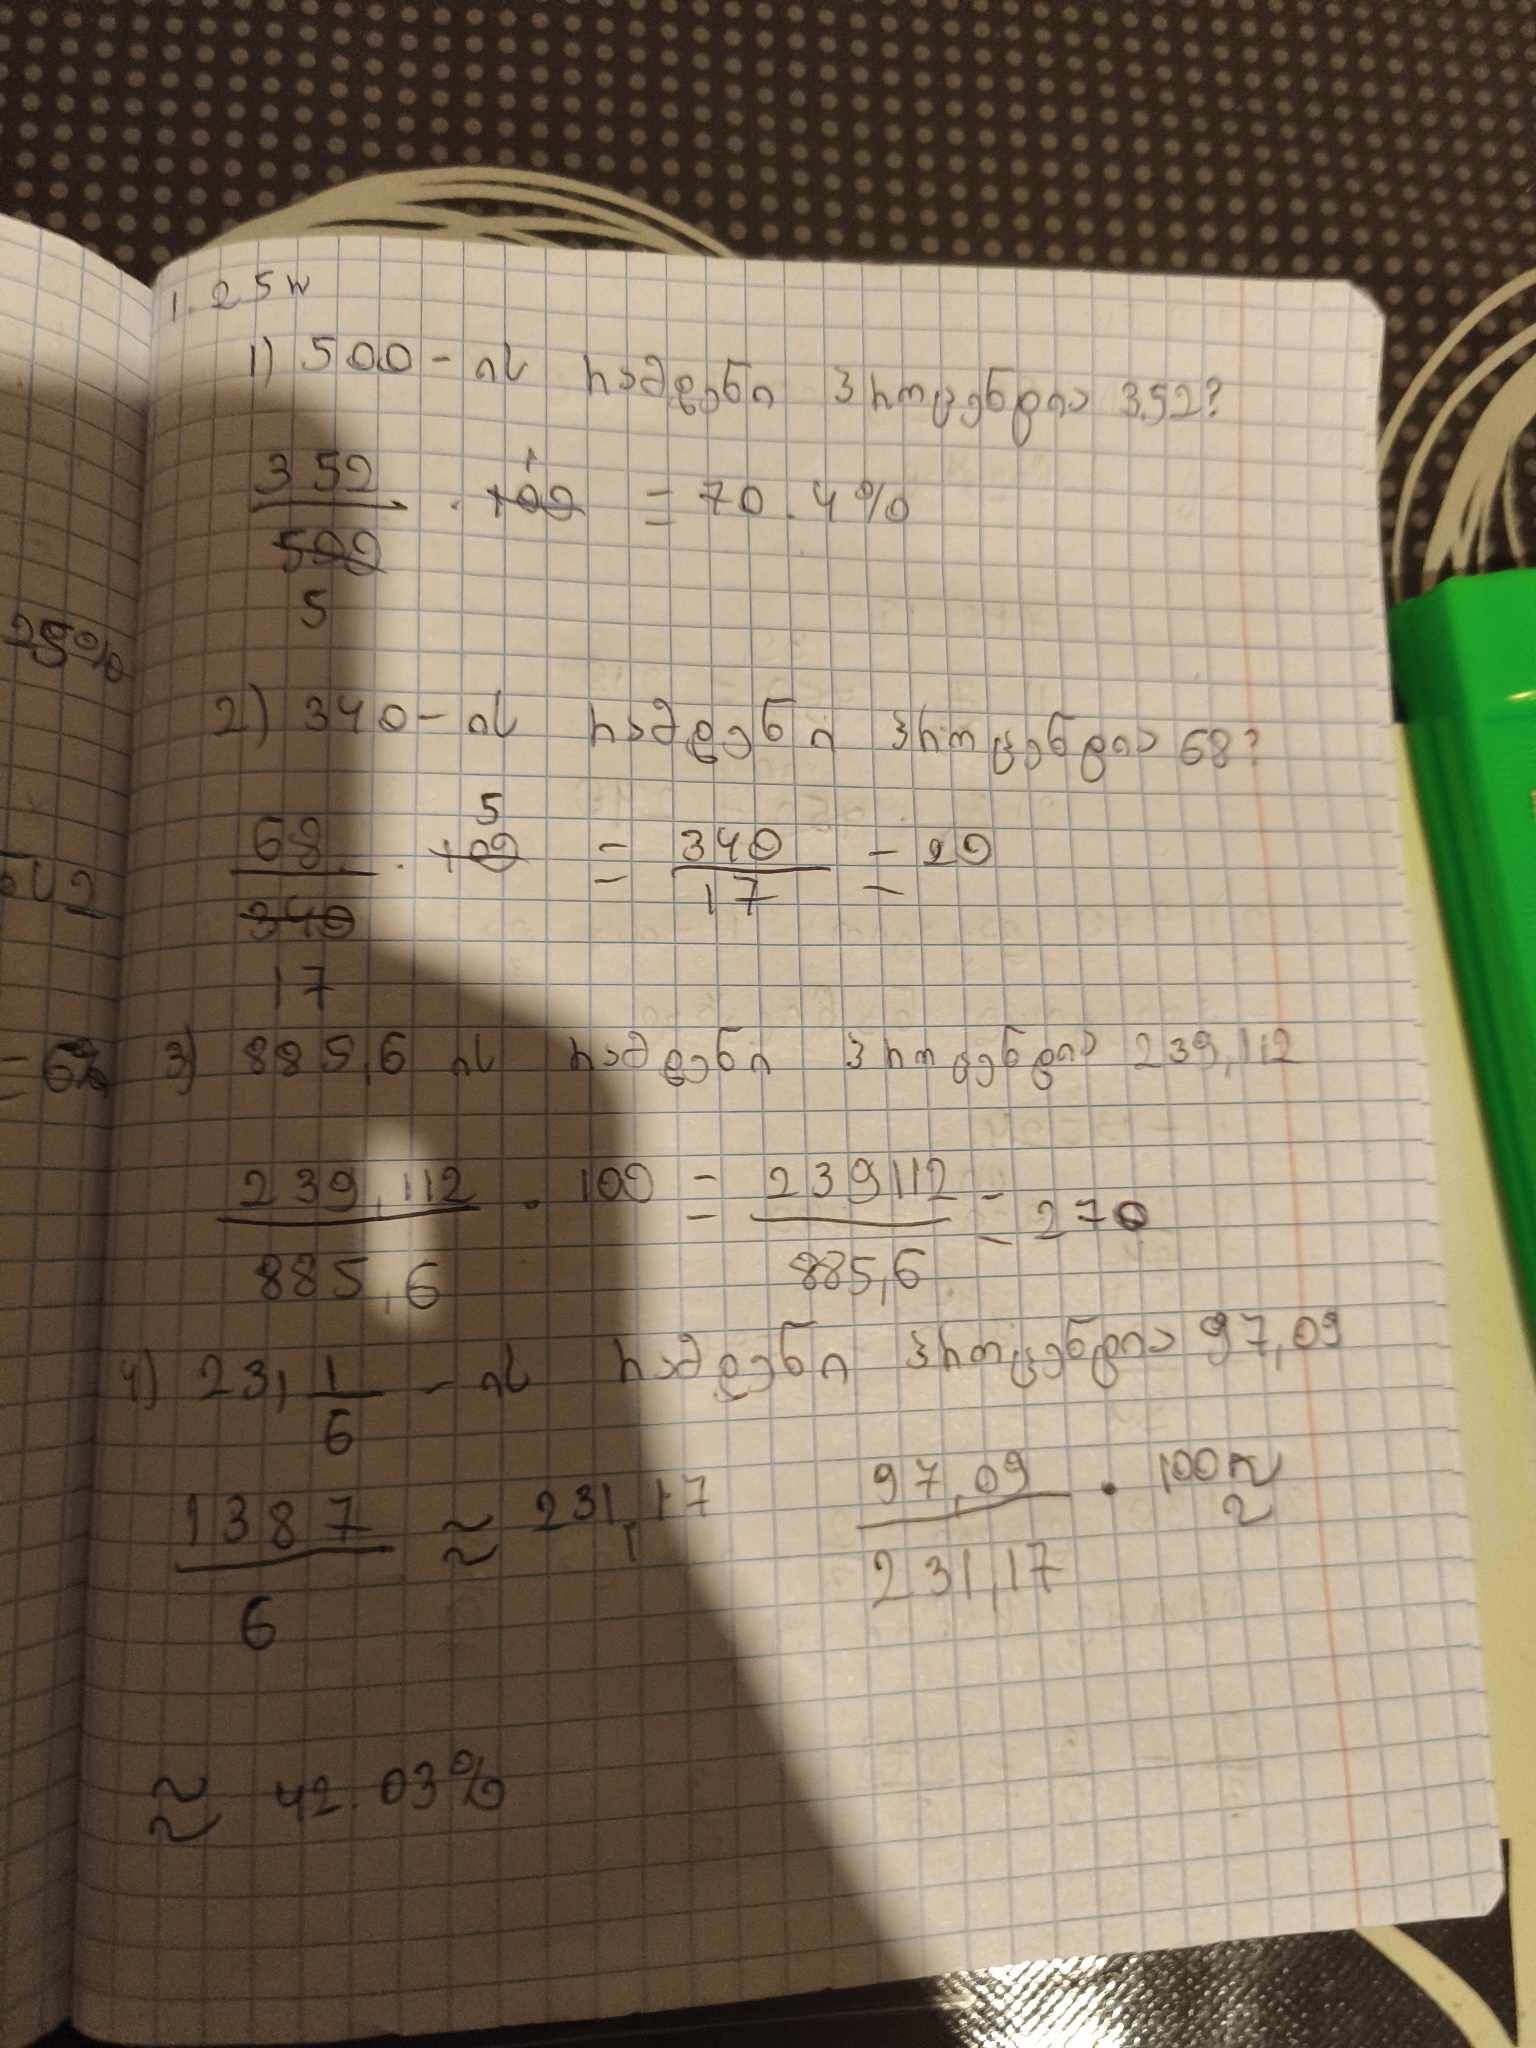 1. 25w
1) 500 - ის რამდენი პროცენტია 352?
352/500 · 100 = 70.4%
1
5
2) 340 - ის რამდენი პროცენტია 68?
68/340 · 100 = 340/17 = 20
5
17
3) 885,6 ის რამდენი პროცენტია 239,112
239,112/885,6 · 100 = 239112/885,6 = 270
4) 231 1/6 - ის რამდენი პროცენტია 97,09
1387/6 ≈ 231,17 97,09/231,17 · 100 ≈
≈ 42.03%
25%
= 6%